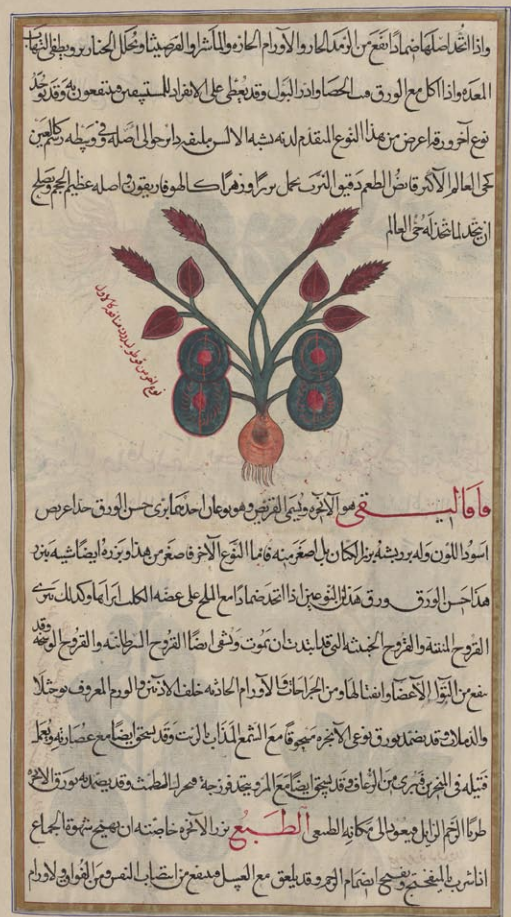 واذا اتخذ اصلها ضمادا نفع من الرمد الحار والاورام الحاره والماشرا والقرصيثا وتحلل الخنازير ويطفى التهاب
المعده واذا اكل مع الورق فت الحصا وادر البول وقد يعطى على الانفراد للمستسقين فينتفعون به وقد يوجد
نوع آخر ورقه اعرض من هذا النوع المقدم لدنه شبه الالسن ملتفه دائر حوالى اصله فى وسطه رسم كالعين
كحى العالم الاكثر قابض الطعم دقيق القضيب يحمل بزرا وزهرا كالهوفاريقون واصله عظيم الحجم ويصلح
ان يتخذ لما يتخذ له حى العالم
نوع آخر من قوطوليدون منافعه كالاول
واقاليفى هو الانجره ويسمى القريص وهو نوعان احدهما برى خشن الورق جدا عريض
اسود اللون وله بزر يشبه بزر الكتان بل اصغر منه فاما النوع الآخر فاصغر من هذا وبزره ايضا شبيه ببزر
هذا خشن الورق ورق هذين النوعين اذا اتخذ ضمادا مع الملح على عضه الكلب ابراها وكذلك يبرى
القروح المنتنه والقروح الخبيثه التى قد ابتدت ان تموت ويشفى ايضا القروح السرطانيه والقروح الوسخه وقد
ينفع من التوا الاعضا وانفتالها ومن الجراحات والاورام الحادثه خلف الاذنين والورم المعروف بوجثلا
والدملات وقد يضمد بورق نوعى الانجره مسحوقا مع الشمع المذاب بالزيت وقد يسحق ايضا مع عصارته ويعمل
فتيله فى المنخرين فيبرى من الرعاف وقد يسحق ايضا مع المر ويتخذ فرزجه فيحرك الطمث وقد يضمد به بورق الانجره
طريا الرحم الزايل فيعود الى مكانه الطبيعى الطبع بزر الانجره خاصته ان يهيج شهوة الجماع
اذا شرب بالميفختج ويفتح انضمام الرحم وقد يلعق مع العسل فينفع من انتصاب النفس ومن الفواق والاورام